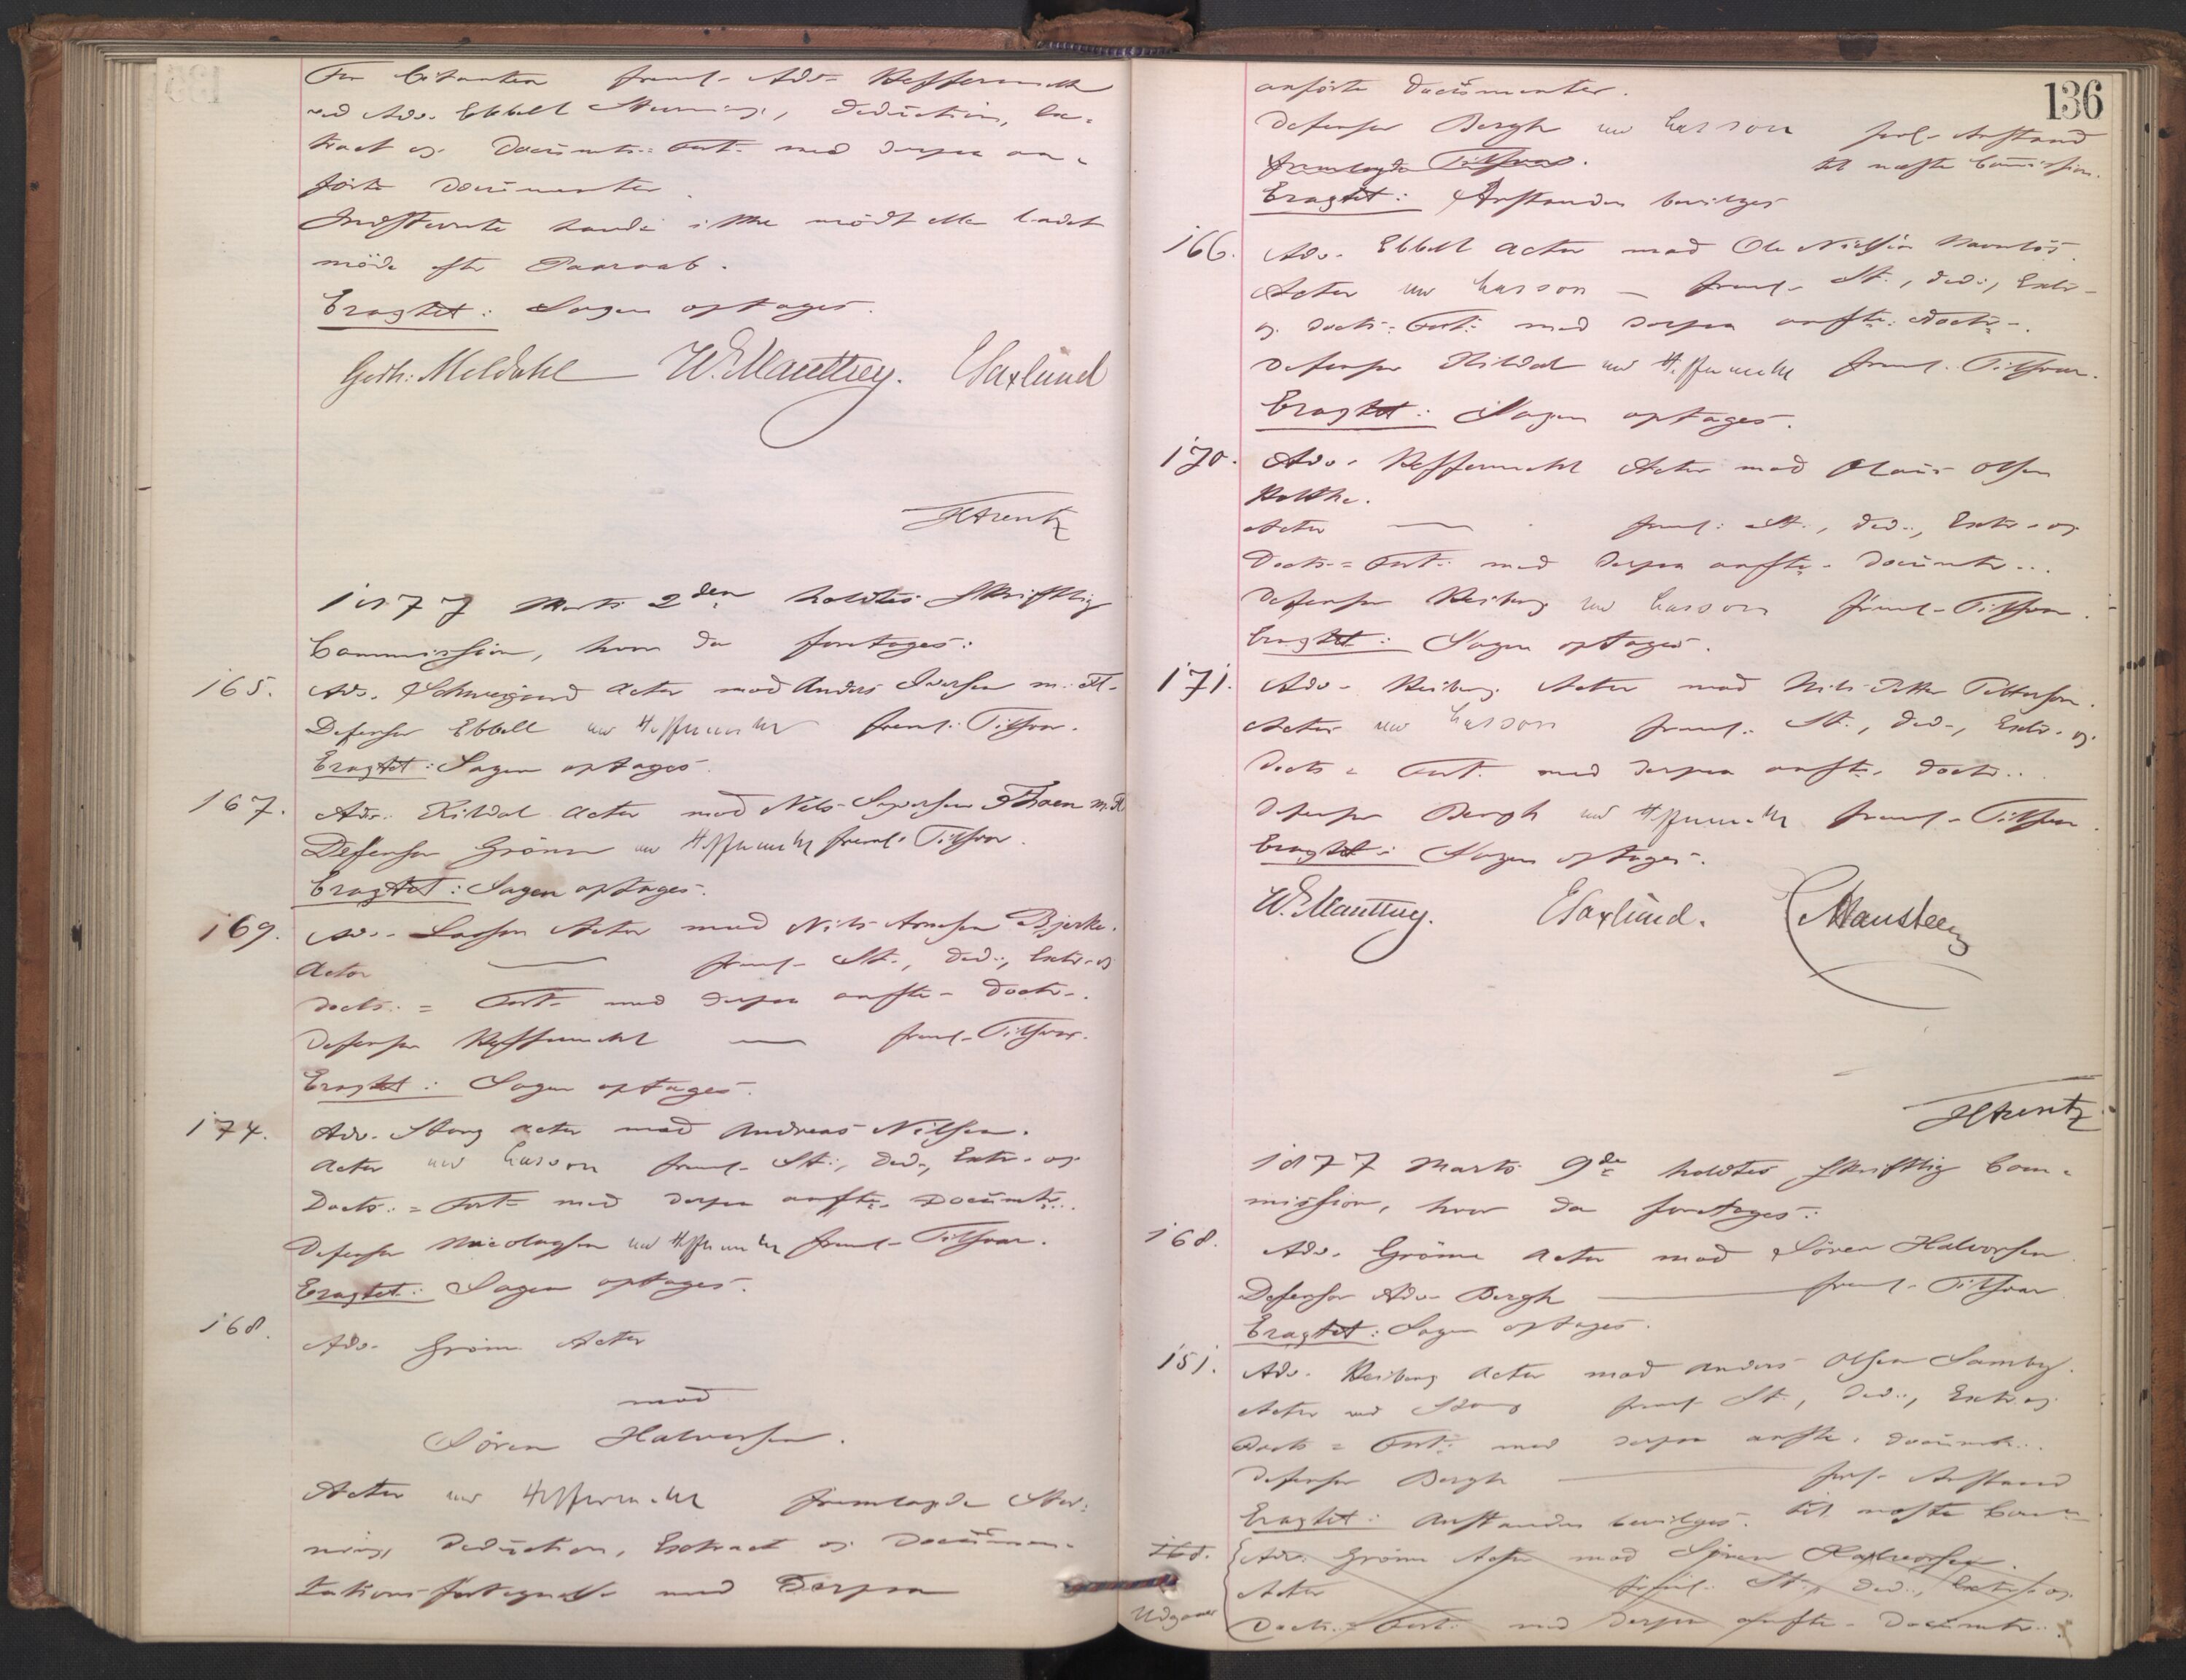 For Citanten freml. Adv. Heffermehl
ved Adv. Ebbell Stevning, Deduction, Ex-
tract og Documts.= Fort. med derpaa an-
førte Documenter.
Indstevnte havde ikke mödt eller ladet
möde efter Paaraab.
Eragtet: Sagen optages.
Gerh. Meldahl W. E. Manthey. E Saxlund
HArentz
1877 Marts 2den holdtes Skriftlig
Commission, hvor da foretages:
165. Adv. Schweigaard Actor mod Anders Iversen m. Fl.
Defensor Ebbell ved Heffermehl freml. Tilsvar.
Eragtet: Sagen optages.
167. Adv. Kildal Actor mod Nils Siversen Thoen m. Fl
Defensor Grönn ved Heffermehl freml. Tilsvar.
Eragtet: Sagen optages.
169. Adv. Lasson Actor mod Nils Arnesen Bjerke.
Actor — freml. St., Ded., Extr. og
Docts. = Fort. med derpaa anfte. Doctr.
Defensor Heffermehl — freml. Tilsvar.
Eragtet: Sagen optages.
174. Adv. Stang Actor mod Andreas Nilsen.
Actor ved Lasson freml. St., Ded., Extr. og
Docts. = Fort. med derpaa anfte. Documtr.
Defensor Nicolaysen ved Heffermehl freml. Tilsvar.
Eragtet: Sagen optages.
168. Adv. Grönn Actor
mod
Sören Halvorsen.
Actor ved Heffermehl fremlagde Stev-
ning, Deduction, Extract og Documen-
tationsfortegnelse med derpaa
136
anførte Documenter.
Defensor Bergh ved Lasson forl. Anstand
fremlagde Tilsvar. til næste Commission.
Eragtet: Anstanden bevilges
166. Adv. Ebbell Actor mod Ole Nielsen Navnlös.
Actor ved Lasson — freml. St., Ded., Extr.
og Docts. = Fort. med derpaa anfte. Doctr.
Defensor Kildal ved Heffermehl freml. Tilsvar.
Eragtet: Sagen optages.
170. Adv. Heffermehl Actor mod Olaus Olsen
Holthe.
Actor — freml. St., Ded., Extr. og
Docts. = Fort. med derpaa anfte. Documtr.
Defensor Heiberg ved Lasson freml. Tilsvar.
Eragtet: Sagen optages.
171. Adv. Heiberg Actor mod Nils Petter Pettersen.
Actor ved Lasson freml. St., Ded., Extr. og
Docts = Fort. med derpaa anfte. Doctr.
Defensor Bergh ved Heffermehl freml. Tilsvar.
Eragtet: Sagen optages.
W. E. Manthey. E Saxlund. C Hansteen
HArentz
1877 Marts 9de holdtes skriftlig Com-
mission, hvor da foretages:
168. Adv. Grönn Actor mod Sören Halvorsen
Defensor Adv. Bergh — freml. Tilsvar
Eragtet: Sagen optages.
151. Adv. Heiberg Actor mod Anders Olsen Samby.
Actor ved Stang freml. St., Ded., Extr og
Docts = Fort. med derpaa anfte. Documtr.
Defensor Bergh — forl. Anstand
Eragtet: Anstanden bevilges. til næste Comm.
168. Adv. Grönn Actor mod Sören Halvorsen.
Actor freml. St., Ded., Extr. og
Udgaaer Docts. = Fort. med derpaa anfte. Documtr.